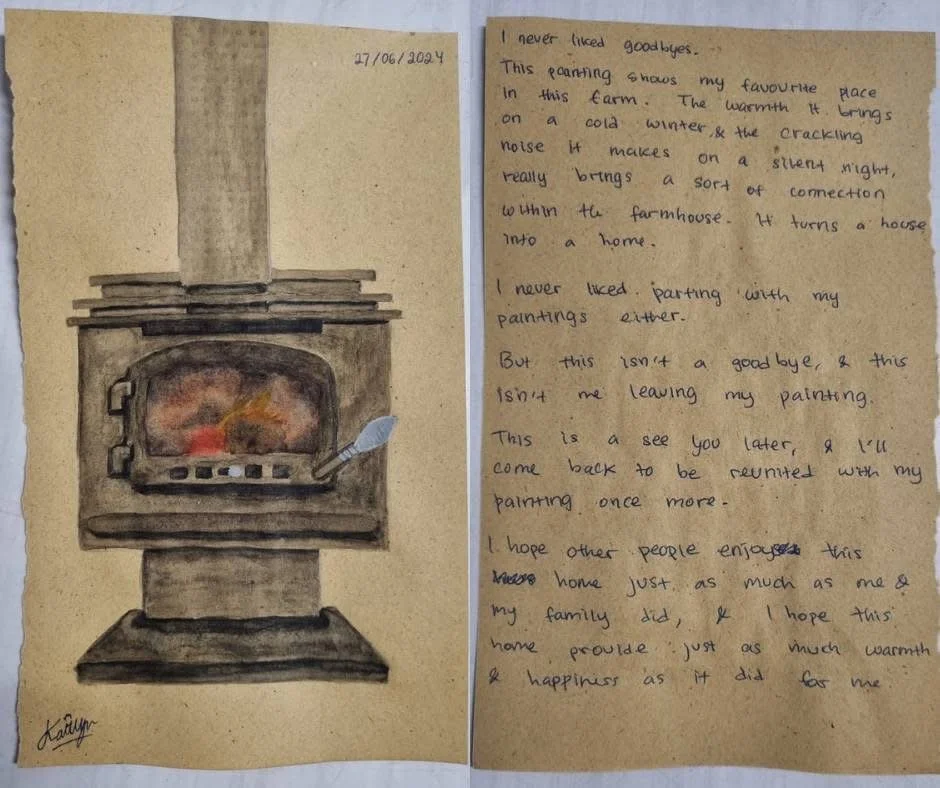 27/06/2024
Kaitlyn
I never liked goodbyes.
This painting shows my favourite place
in this farm. The warmth it brings
on a cold winter, & the crackling
noise it makes on a silent night,
really brings a sort of connection
within the farmhouse. It turns a house
into a home.
I never liked parting with my
paintings either.
But this isn't a goodbye, & this
isn't me leaving my painting.
This is a see you later, & I'll
come back to be reunited with my
painting once more.
I hope other people enjoy this
home just as much as me &
my family did, & I hope this
home provide just as much warmth
& happiness as it did for me.